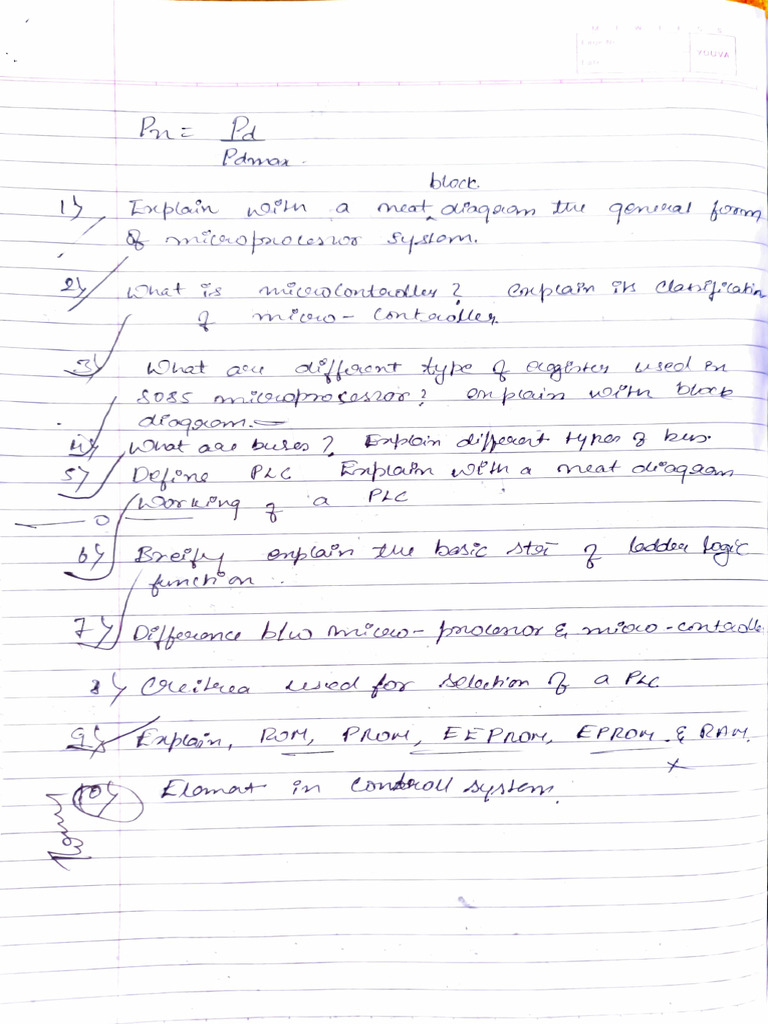 YOUVA
Pn = Pd
Pdmax.
block.
1) Explain with a neat diagram the general form
of microprocessor system.
2) What is microcontroller? explain its classification
of micro-controller.
3) What are different type of register used in
8085 microprocessor? explain with block
diagram.
4) What are buses? Explain different types of bus.
5) Define PLC Explain with a neat diagram
Working of a PLC
6) Breify explain the basic of ladder logic
function.
7) Difference b/w micro-processor & micro-controlle
8) used for selection of a PLC
9) Explain, ROM, PROM, EEPROM, EPROM & RAM.
10) Elomat in controll system.